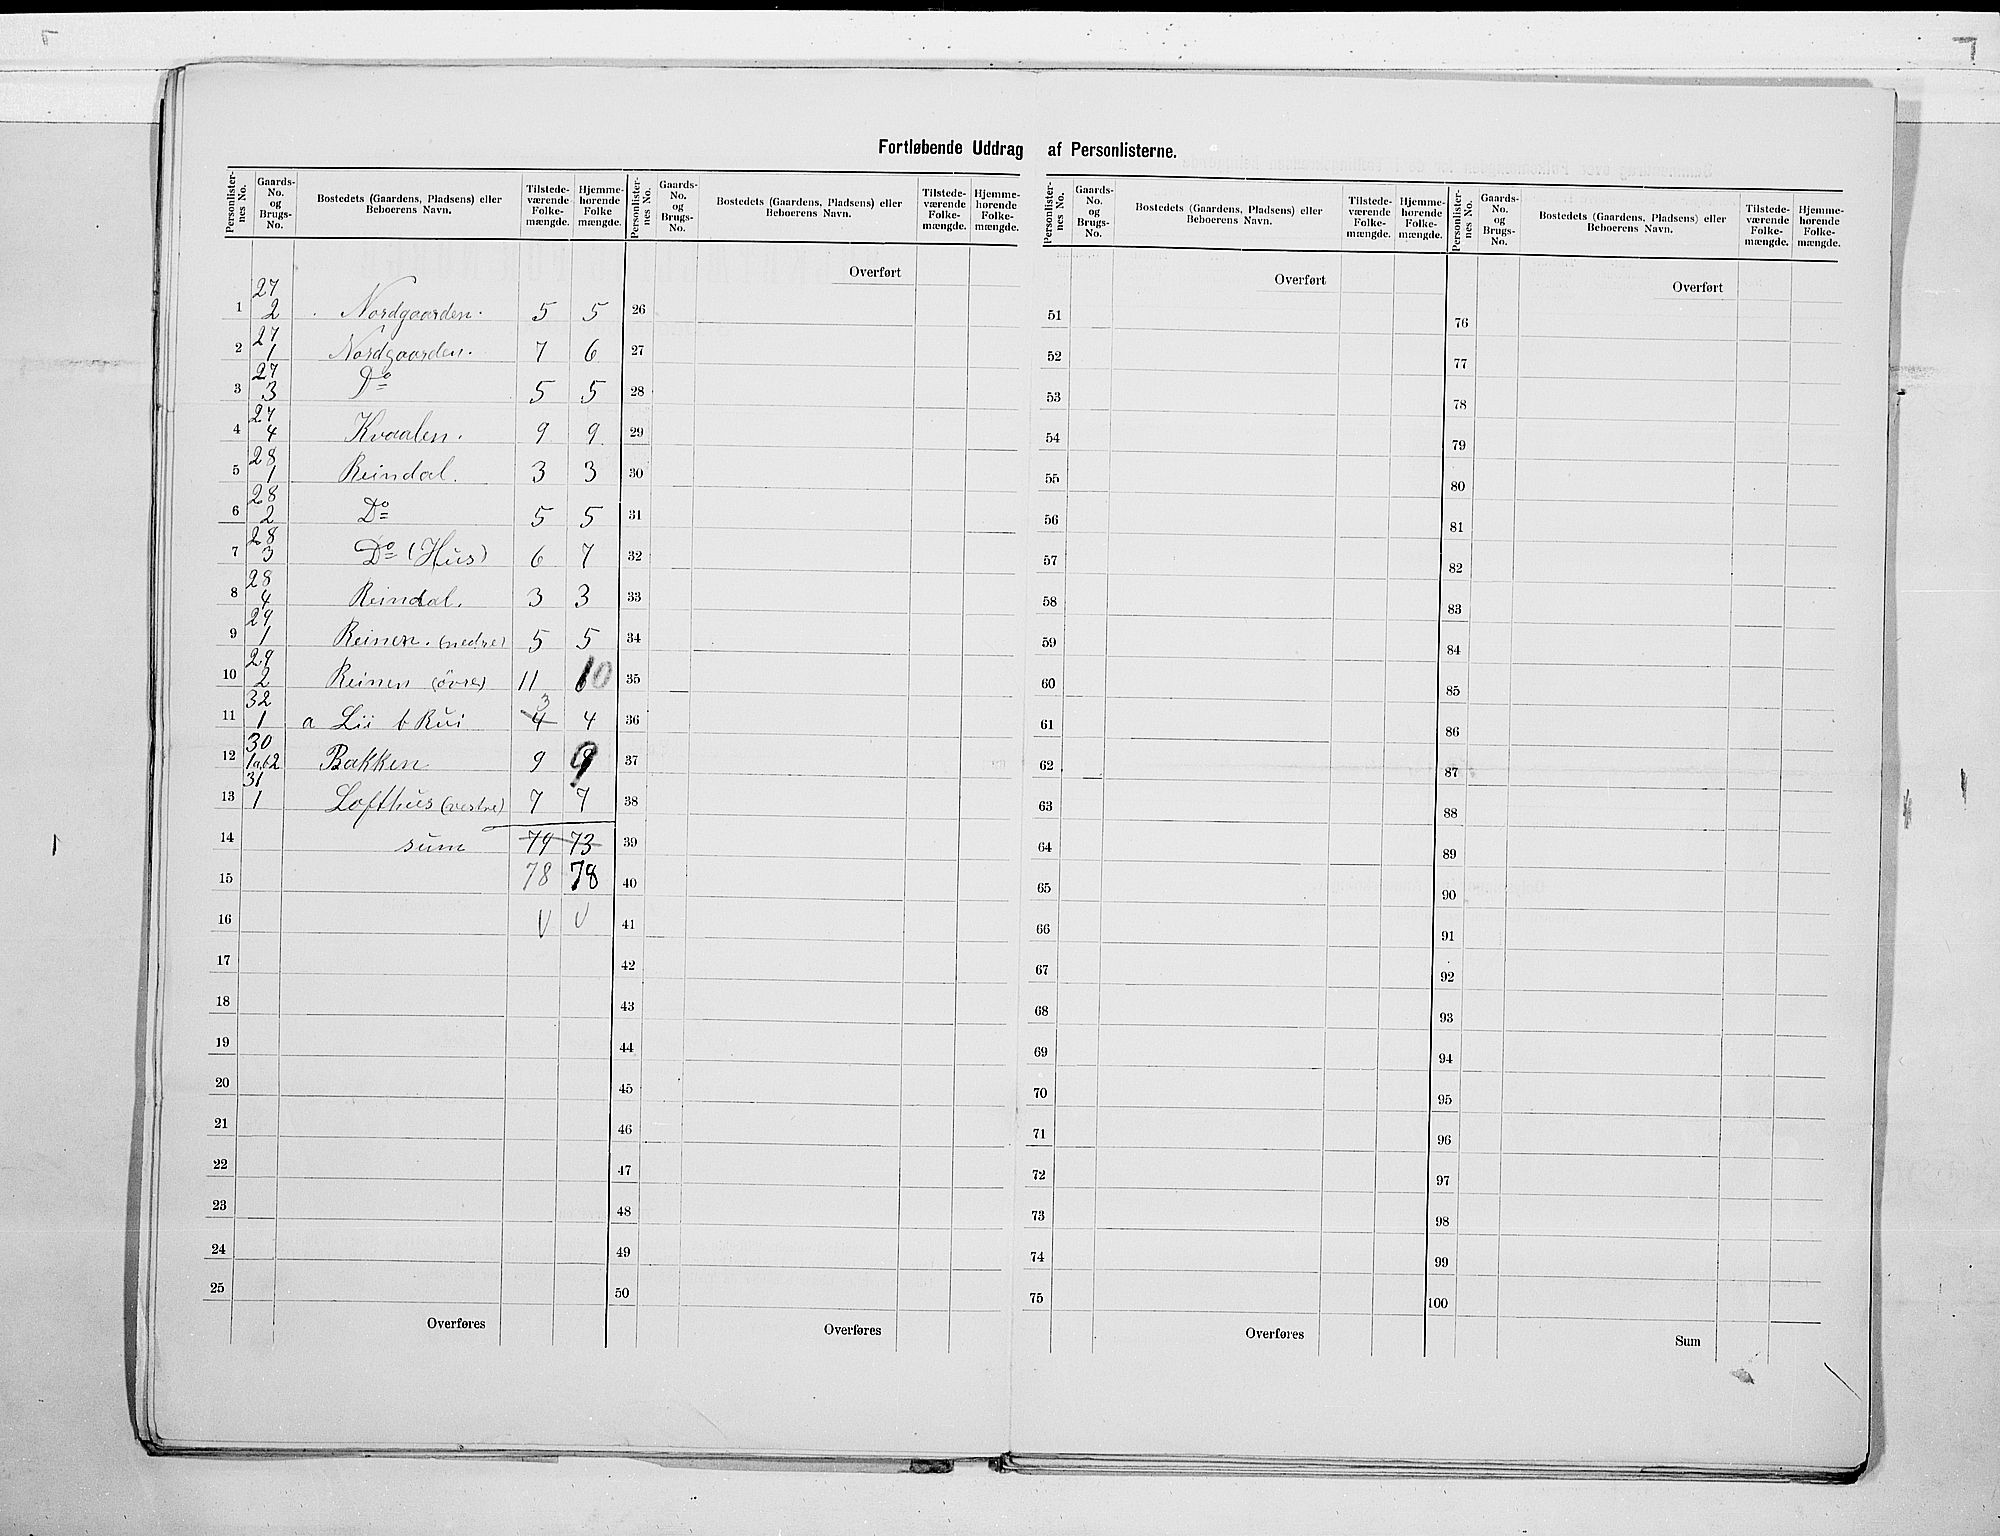 Fortløbende Uddrag af Personlisterne.
Personlister-nes No. Gaards-No. og Brugs-No. Bostedets (Gaardens, Pladsens) eller Beboerens Navn. Tilstede-værende Folke-mængde. Hjemme-hørende Folke mængde.
Personlister-nes No. Gaards-No. og Brugs-No. Bostedets (Gaardens, Pladsens) eller Beboerens Navn. Tilstede-værende Folke-mængde. Hjemme-hørende Folke-mængde.
Personlister-nes No. Gaards-No. og Brugs-No. Bostedets (Gaardens, Pladsens) eller Beboerens Navn. Tilstede-værende Folke-mængde. Hjemme-hørende Folke-mængde.
Personlister-nes No. Gaards-No. og Brugs-No. Bostedets (Gaardens, Pladsens) eller Beboerens Navn. Tilstede-værende Folke-mængde. Hjemme-hørende Folke-mængde.
1 27 2 Nordgaarden. 5 5
2 27 1 Nordgaarden. 7 6
3 27 3 Do 5 5
4 27 4 Kvaalen. 9 9
5 28 1 Reindal. 3 3
6 28 2 Do 5 5
7 28 3 Do (Hus) 6 7
8 28 4 Reindal. 3 3
9 29 1 Reinen. (nedre) 5 5
10 29 2 Reinen (övre) 11 10
11 32 1 a Lii b Rui 4 3 4
12 30 1a,b2 Bakken 9 9
13 31 1 Lofthus (vestre) 7 7
14 sum 79 73
15 78 78
16 V V
17
18
19
20
21
22
23
24
25
Overføres
Overført
26
27
28
29
30
31
32
33
34
35
36
37
38
39
40
41
42
43
44
45
46
47
48
49
50
Overføres
Overført
51
52
53
54
55
56
57
58
59
60
61
62
63
64
65
66
67
68
69
70
71
72
73
74
75
Overføres
Overført
76
77
78
79
80
81
82
83
84
85
86
87
88
89
90
91
92
93
94
95
96
97
98
99
100
Sum